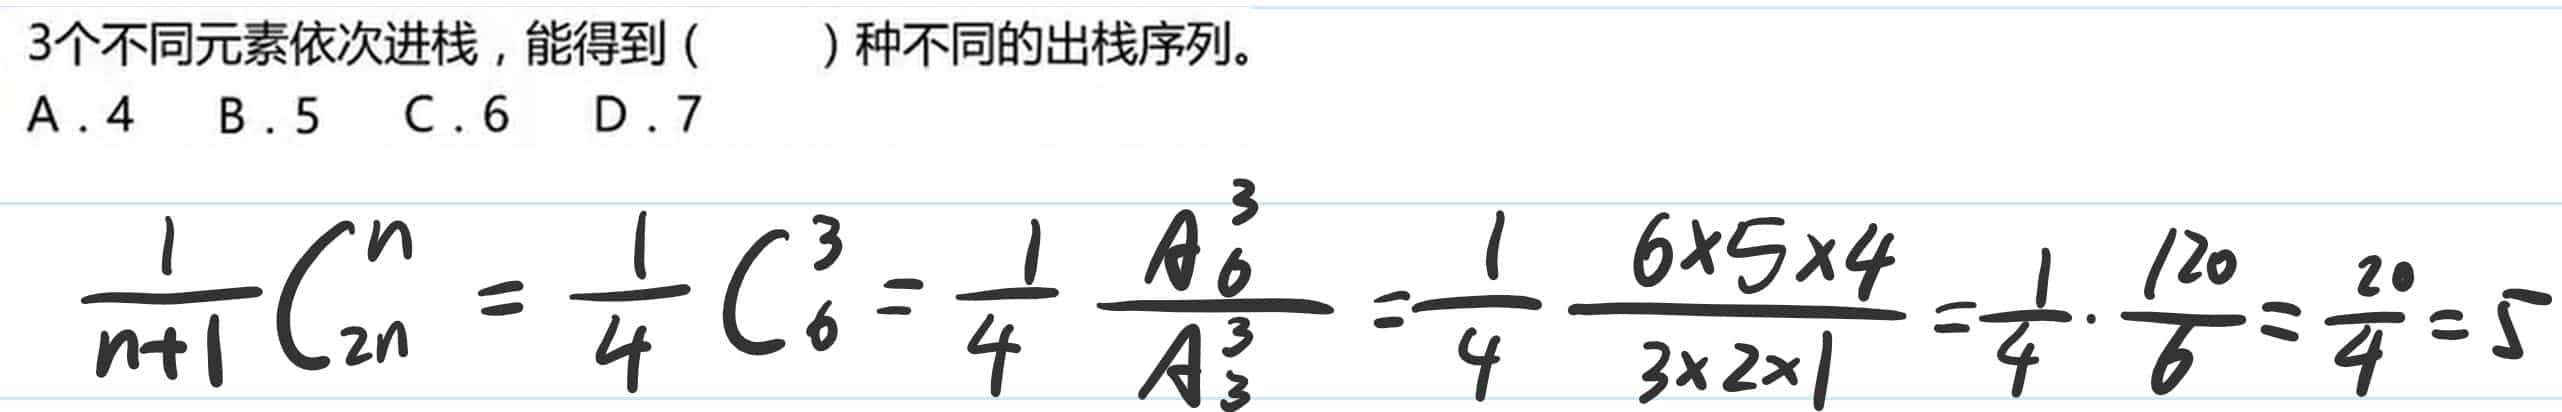 3个不同元素依次进栈，能得到（　　）种不同的出栈序列。
A．4　B．5　C．6　D．7
$\frac{1}{n+1} C_{2n}^{n} = \frac{1}{4} C_{6}^{3} = \frac{1}{4} \frac{A_{6}^{3}}{A_{3}^{3}} = \frac{1}{4} \frac{6×5×4}{3×2×1} = \frac{1}{4} · \frac{120}{6} = \frac{20}{4} = 5$